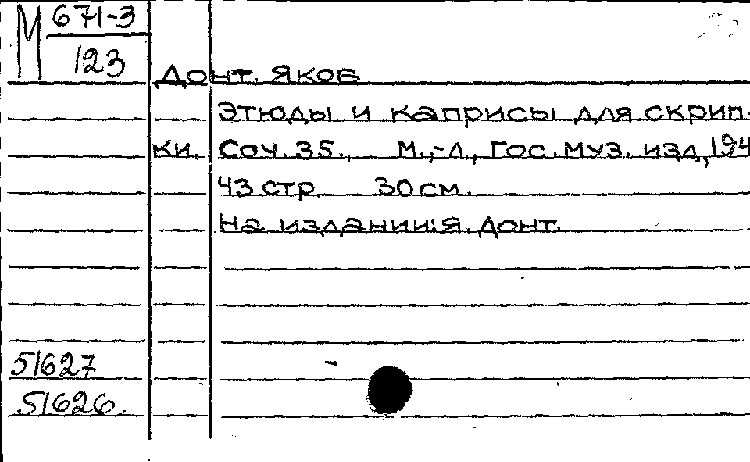 М 671-3
123
Донт, Яков
Этюды и каприсы для скрип-
ки. Соч. 35. М.,-Л., Гос. муз. изд, 194
43 стр. 30 см.
На издании: Я. Донт.
51627
51626.